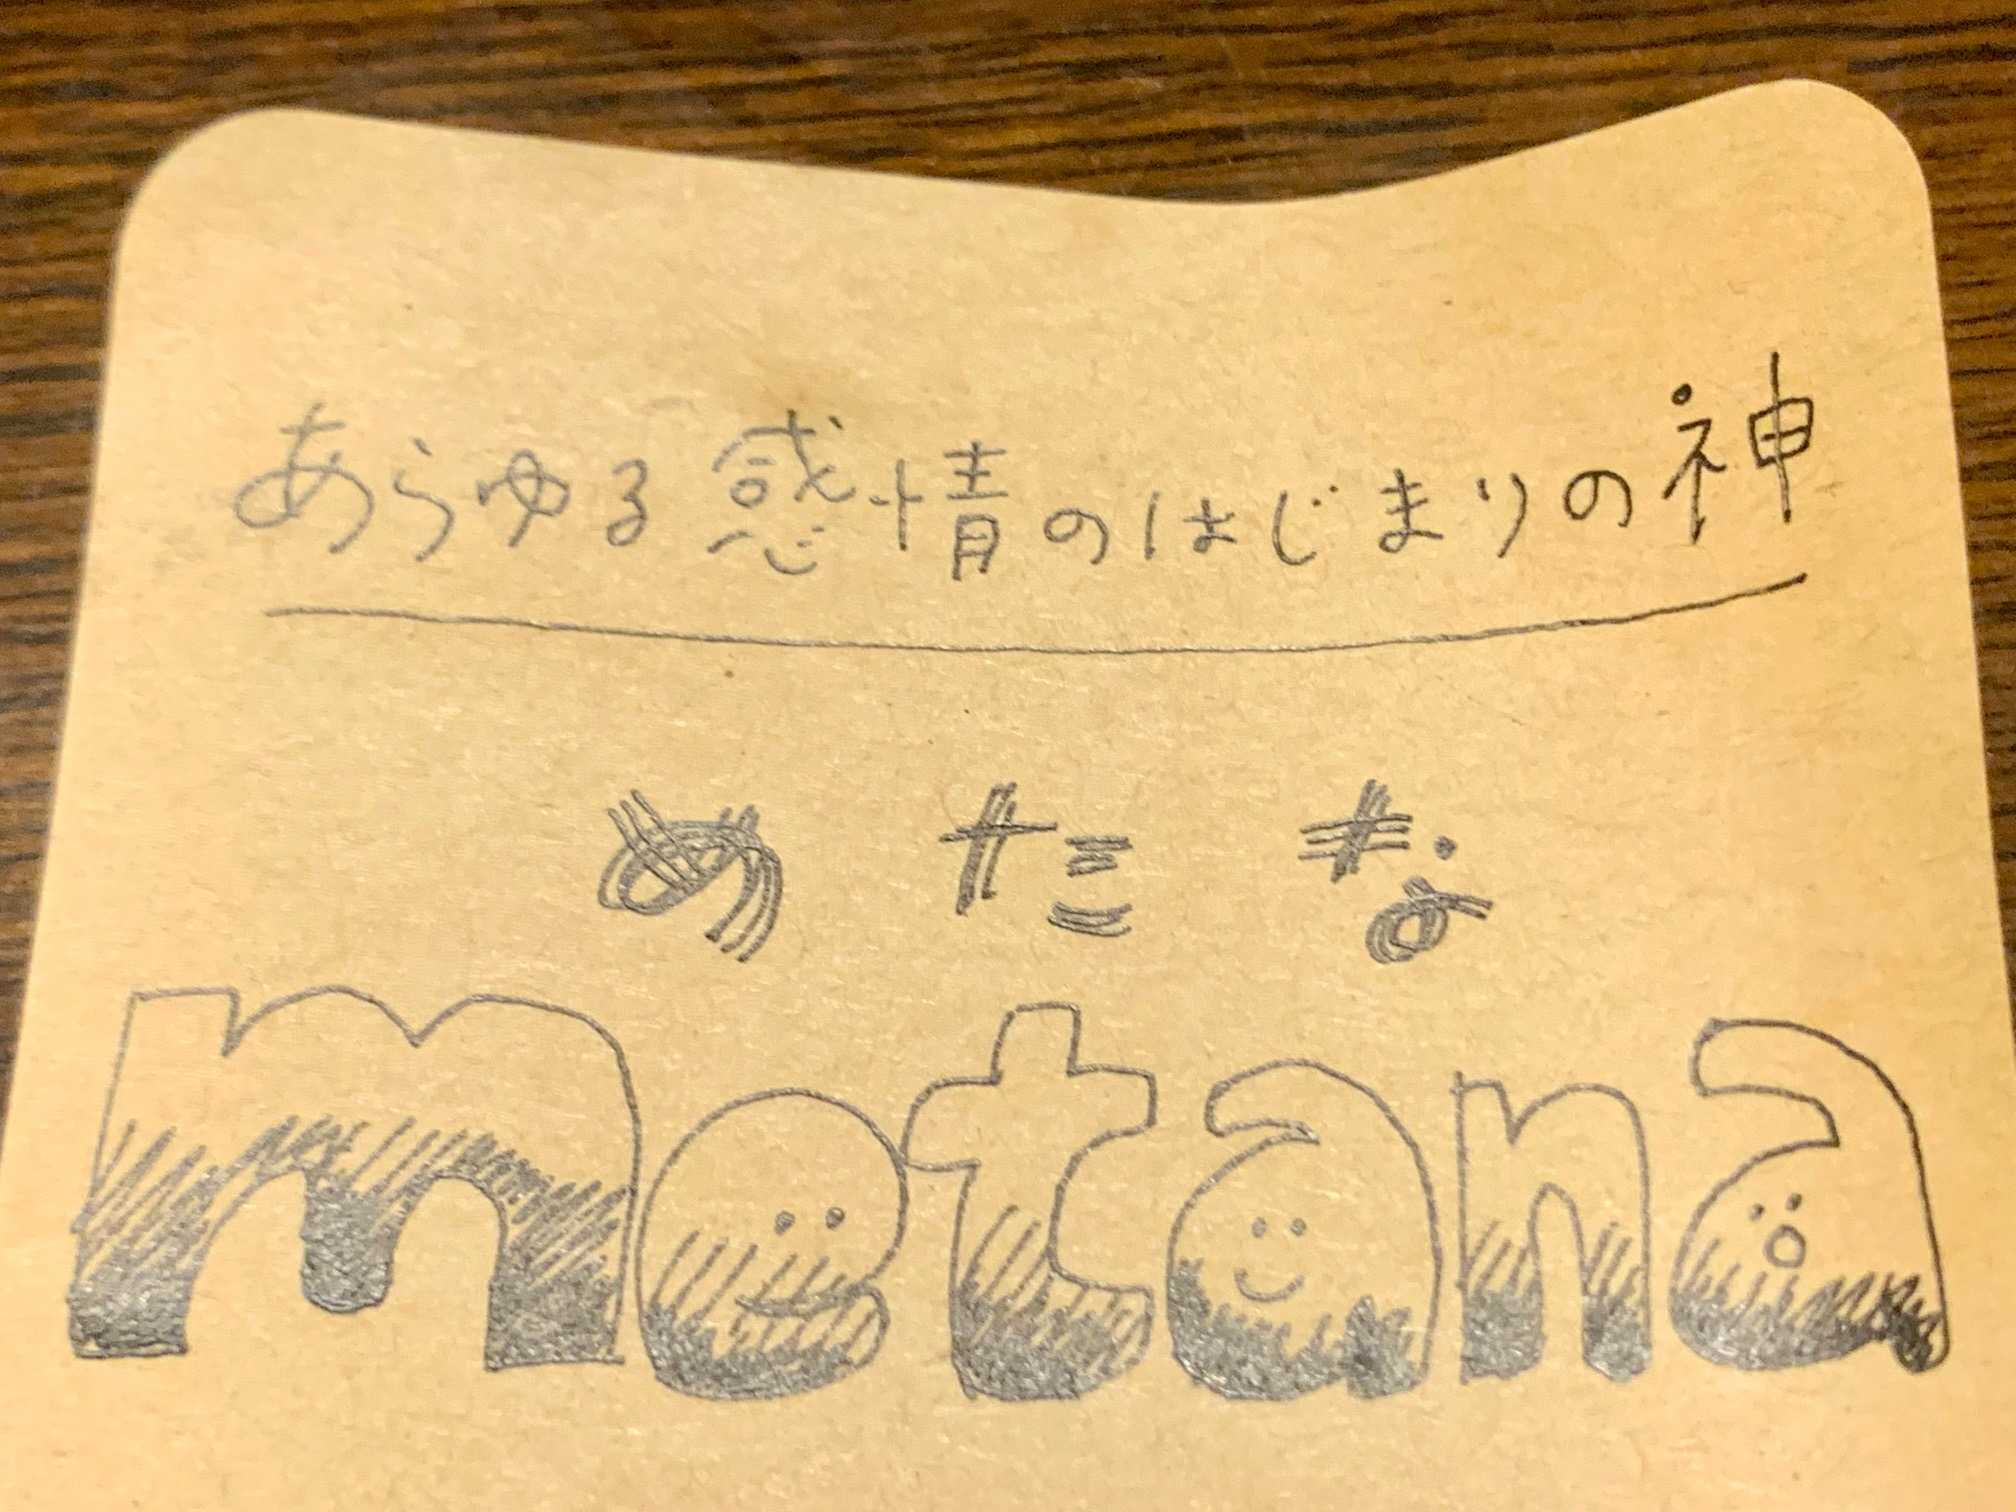 あらゆる感情のはじまりの神
めたな
metana